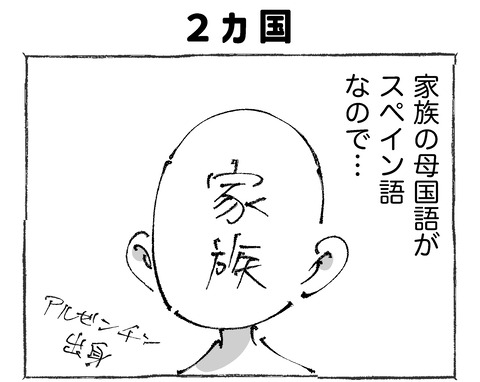 2カ国
家族の母国語が
スペイン語
なので…
家族
アルゼンチン